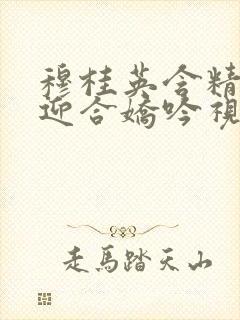 穆桂英含精
迎合嬌吟視
走馬踏天山